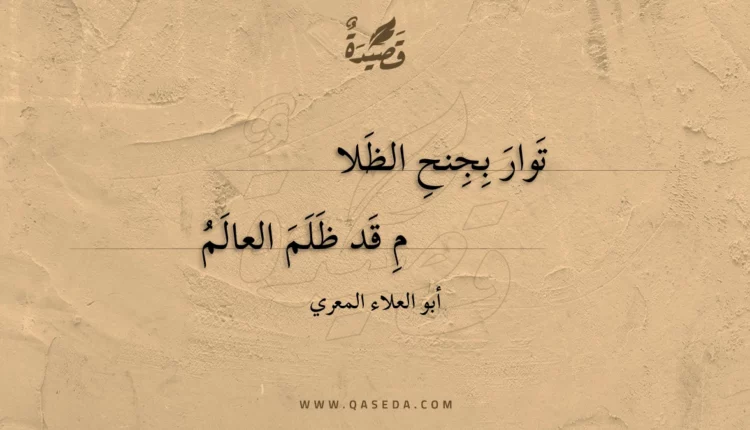 قَصِيْدَةٌ
تَوارَ بِجِنحِ الظَلا
مِ قَد ظَلَمَ العالَمُ
أبو العلاء المعري
WWW.QASEDA.COM